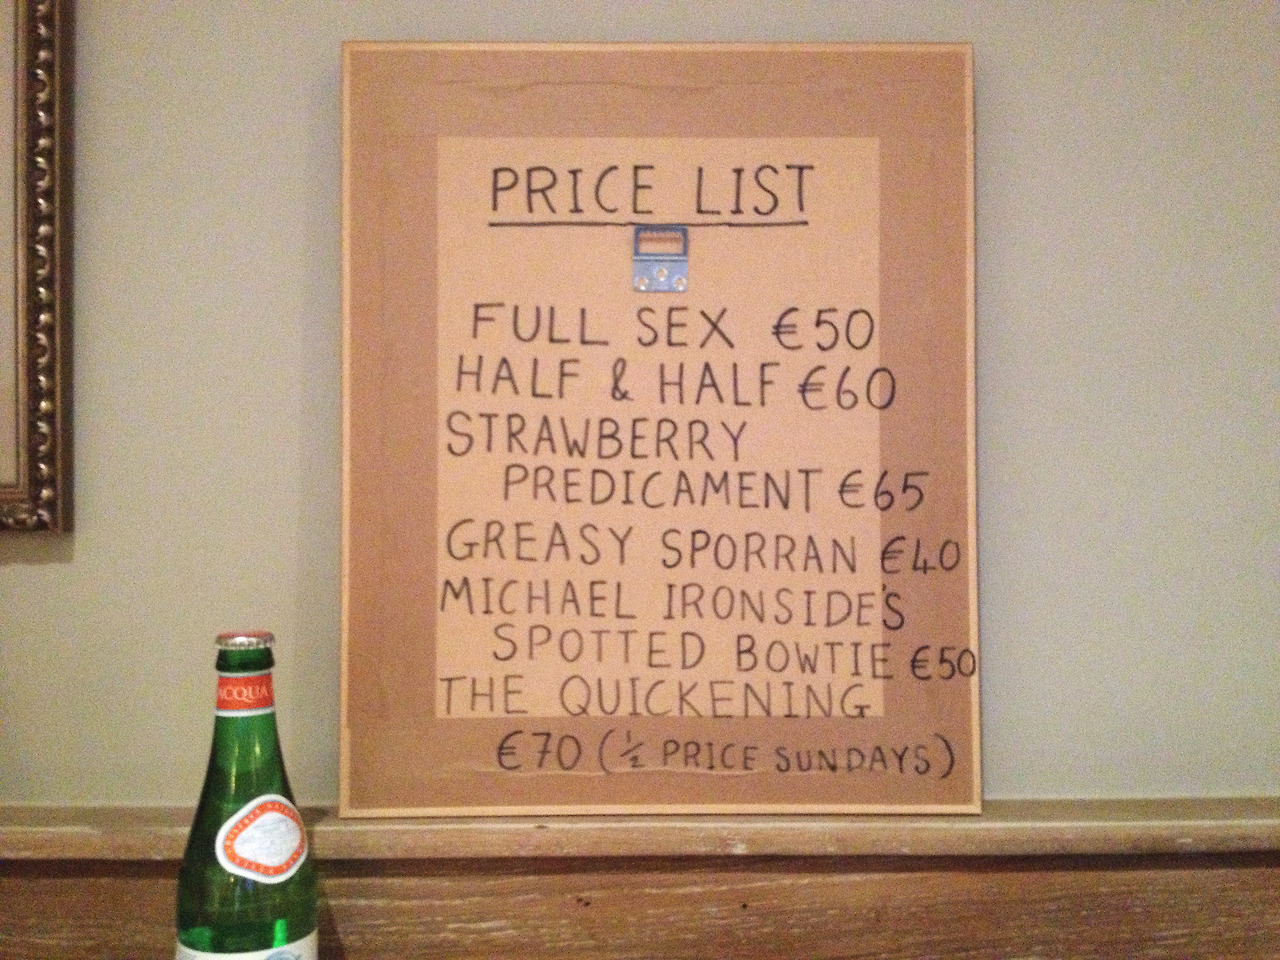 PRICE LIST
FULL SEX €50
HALF & HALF €60
STRAWBERRY
PREDICAMENT €65
GREASY SPORRAN €40
MICHAEL IRONSIDE'S
SPOTTED BOWTIE €50
THE QUICKENING
€70 (½ PRICE SUNDAYS)
ACQUA